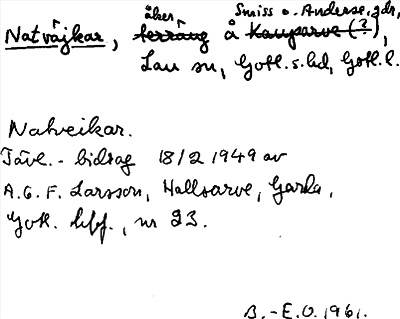 åker, Smiss o. Anderse, gdr,
Natväjkar, terräng å Kauparve (?),
Lau sn, Gotl. s. hd, Gotl. l.
Natveikar.
Tävl. - bidrag 18/2 1949 av
A.G.F. Larsson, Hallsarve, Garda,
Gotl. hff., nr 23.
B.-E.O. 1961.